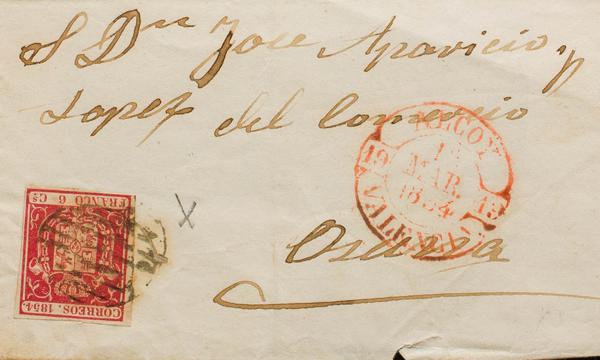 S Dn Jose Aparicio y
Lopez del Comercio
ALCOY
19 19
MAR.
1854
VALENCIA
FRANCO 6 Cs
CORREOS. 1854.